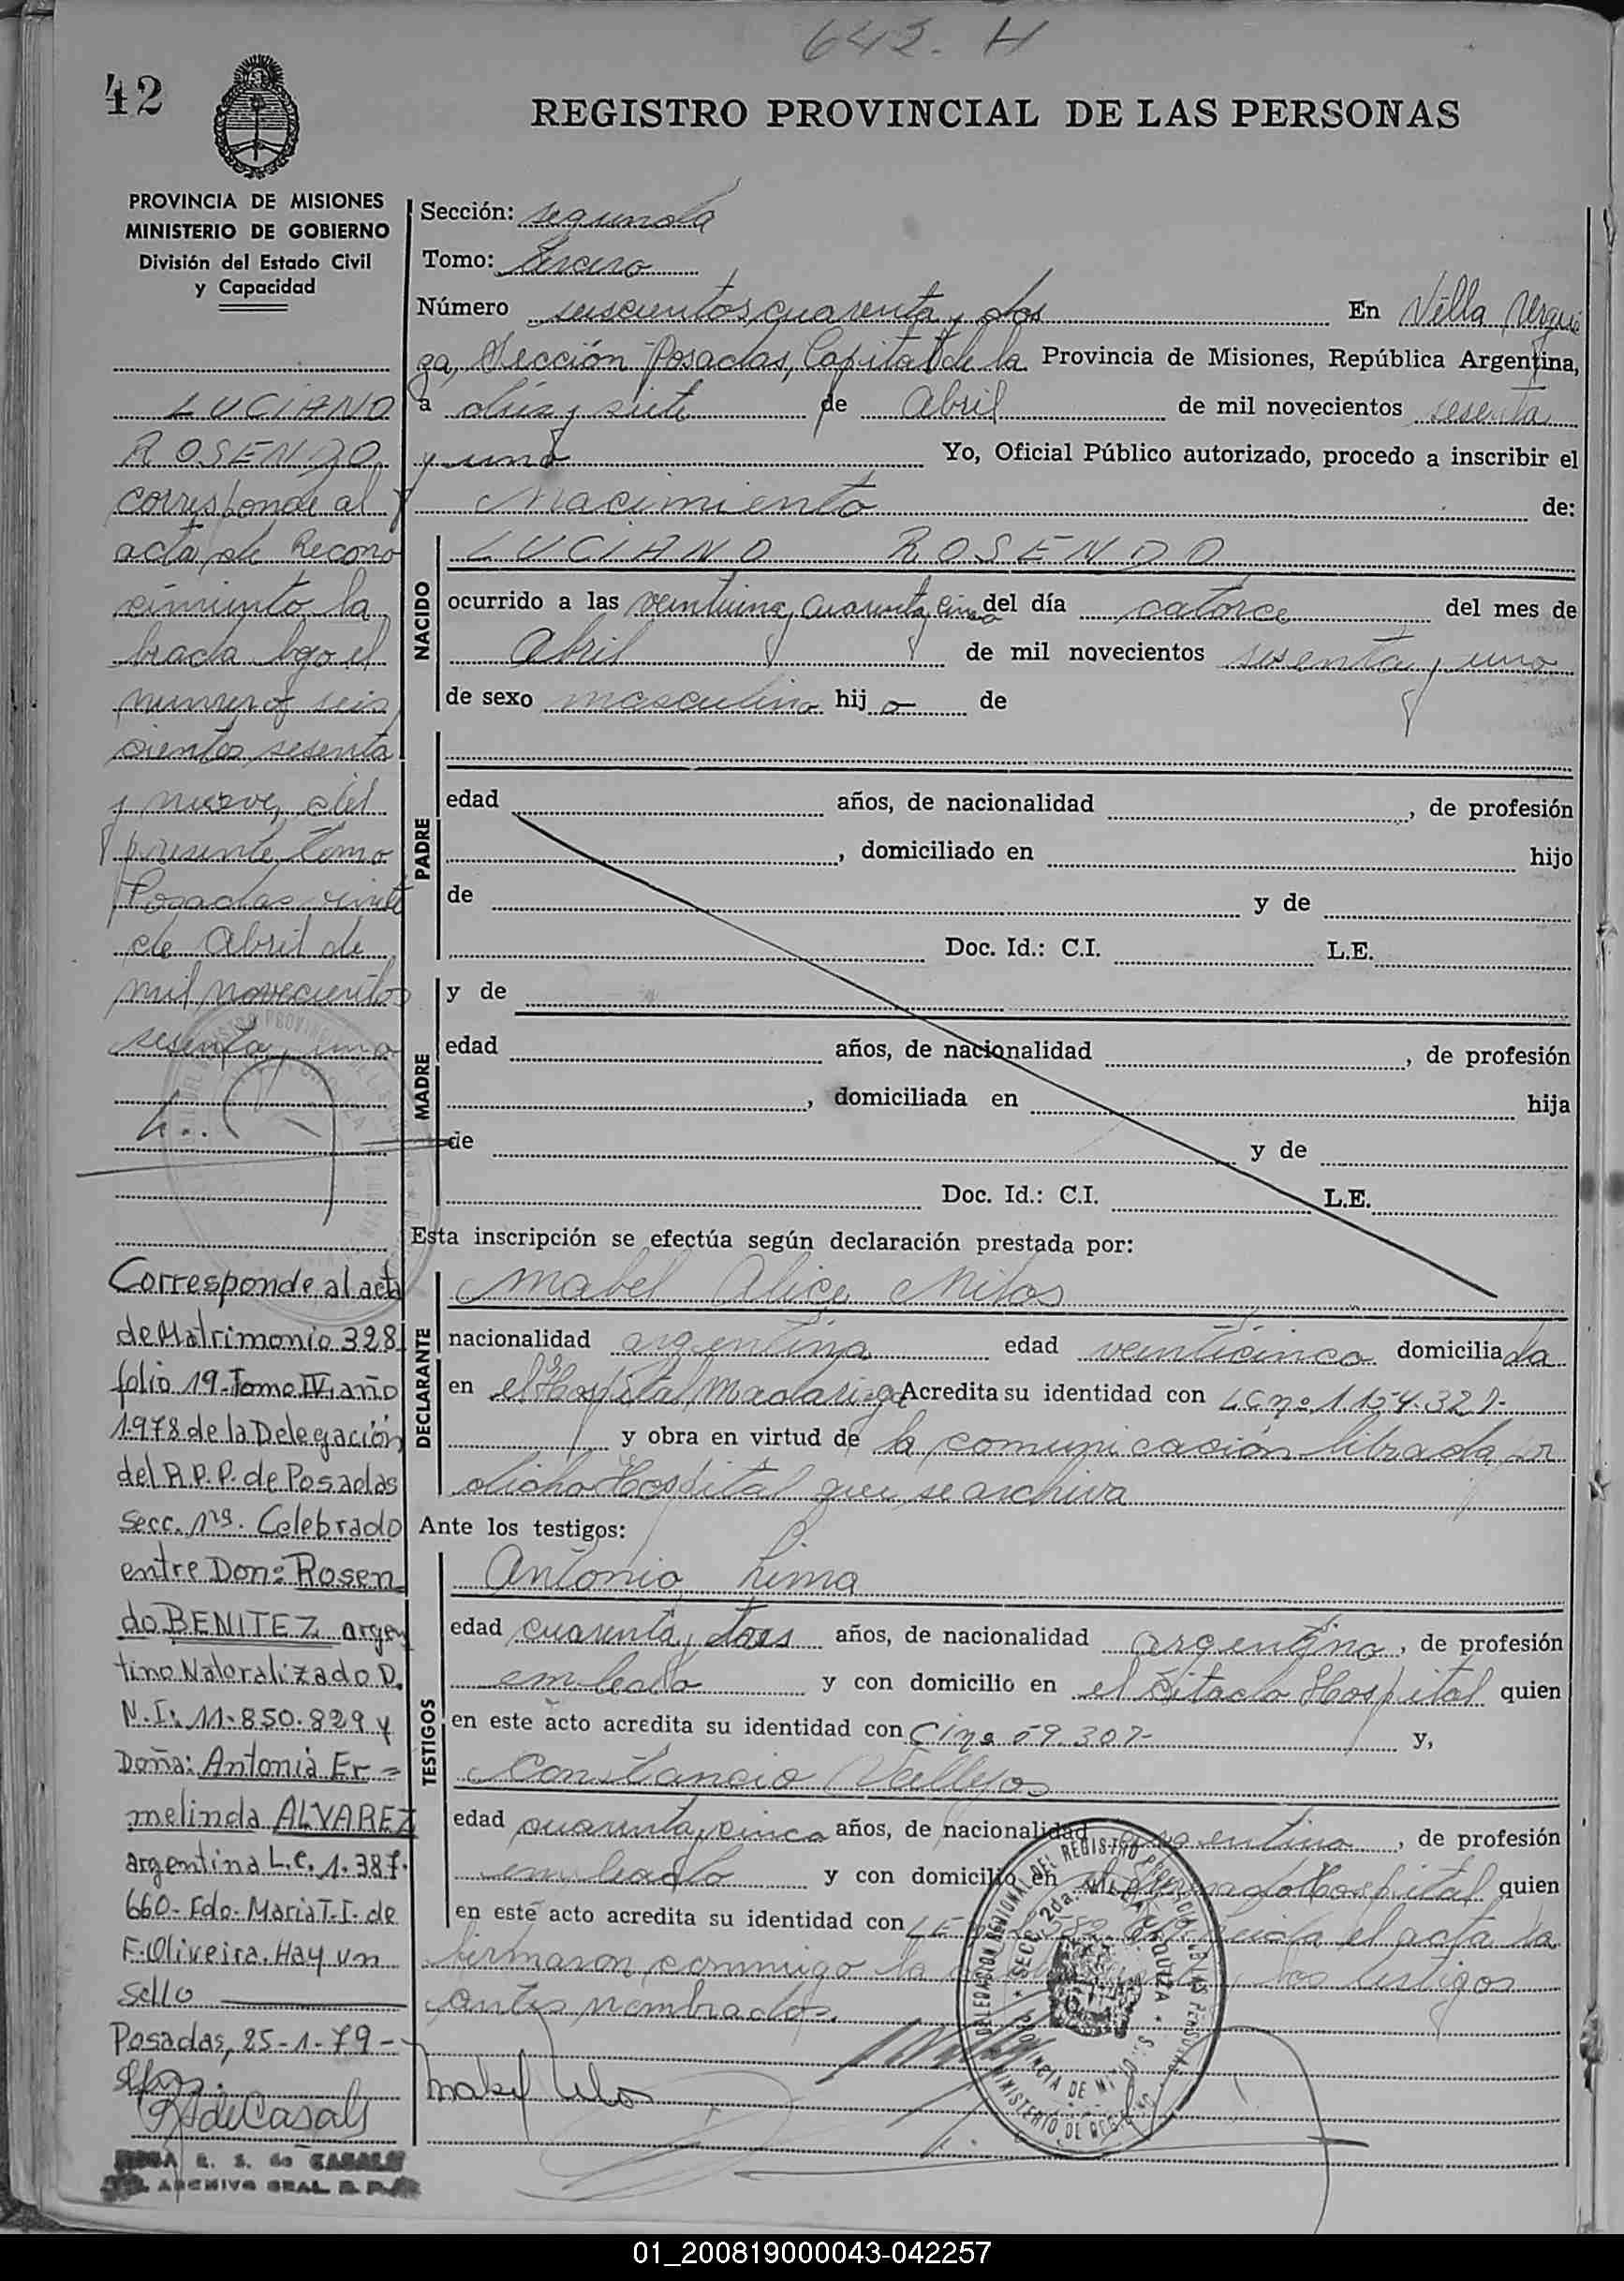 642. H
42
REGISTRO PROVINCIAL DE LAS PERSONAS
PROVINCIA DE MISIONES
MINISTERIO DE GOBIERNO
División del Estado Civil
y Capacidad
LUCIANO
ROSENDO
corresponde al
acta de Recono
cimiento la
brada bajo el
numero seis
cientos sesenta
y nueve, del
presente tomo
Posadas veinte
de Abril de
mil novecientos
sesenta y uno
Corresponde al acta
de Matrimonio 328
folio 19-Tomo IV, año
1978 de la Delegación
del R.P.P. de Posadas
Secc. 1ra. Celebrado
entre Don: Rosen
do BENITEZ argen
tino Naturalizado D.
N.I: 11-850-829 y
Doña: Antonia Er=
melinda ALVAREZ
argentina L.C. 1.387.
660- Fdo- Maria T.I. de
F. Oliveira. Hay un
sello
Posadas, 25-1-79-
RS de Casals
R. S. de CASALS
ARCHIVO GRAL. R. P.
Sección: segunda
Tomo: tercero
Número seiscientos cuarenta y dos En Villa Urqui
za, Sección Posadas, Capital de la Provincia de Misiones, República Argentina,
a diez y siete de Abril de mil novecientos sesenta
y uno Yo, Oficial Público autorizado, procedo a inscribir el
Nacimiento de:
NACIDO
LUCIANO ROSENDO
ocurrido a las veintiuna y cuarenta y cinco del día catorce del mes de
Abril de mil novecientos sesenta y uno
de sexo masculino hij o de
PADRE
edad años, de nacionalidad , de profesión
, domiciliado en hijo
de y de
Doc. Id.: C.I. L.E.
MADRE
y de
edad años, de nacionalidad , de profesión
, domiciliada en hija
de y de
Doc. Id.: C.I. L.E.
Esta inscripción se efectúa según declaración prestada por:
DECLARANTE
Mabel Alice Milos
nacionalidad argentina edad veinticinco domicilia da
en el Hospital Madariaga Acredita su identidad con LC nº 1.154.327-
y obra en virtud de la comunicación librada por
dicho Hospital que se archiva
Ante los testigos:
TESTIGOS
Antonio Lima
edad cuarenta y dos años, de nacionalidad argentino, de profesión
empleado y con domicilio en el citado Hospital quien
en este acto acredita su identidad con CI nº 59.307- y,
Constancio Vallejos
edad cuarenta y cinco años, de nacionalidad argentino, de profesión
empleado y con domicilio en el Hospital quien
en este acto acredita su identidad con LE el acta la
firmaron conmigo la testigos
antes nombrados.
DELEGACION REGIONAL DEL REGISTRO PROVINCIAL DE LAS PERSONAS
SECC. 2da. VILLA URQUIZA
PROVINCIA DE MISIONES
MINISTERIO DE GOBIERNO
Mabel Milos
01_200819000043-042257